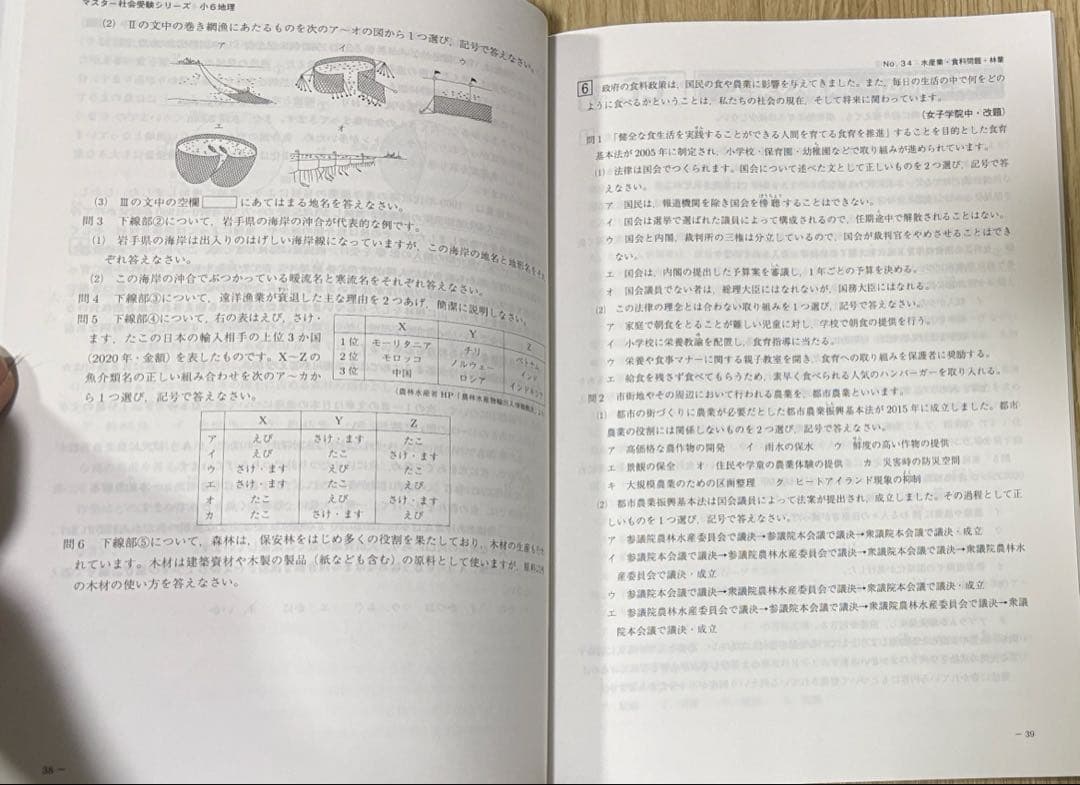 マスター社会受験シリーズ 小6地理
(2) Ⅱの文中の巻き網漁にあたるものを次のア〜オの図から1つ選び、記号で答えなさい。
ア
イ
ウ
エ
オ
(3) Ⅲの文中の空欄 にあてはまる地名を答えなさい。
問3 下線部②について、岩手県の海岸の沖合が代表的な例です。
(1) 岩手県の海岸は出入りのはげしい海岸線になっていますが、この海岸の地名と地形名をそれ
ぞれ答えなさい。
(2) この海岸の沖合でぶつかっている暖流名と寒流名をそれぞれ答えなさい。
問4 下線部③について、遠洋漁業が衰退した主な理由を2つあげ、簡潔に説明しなさい。
問5 下線部④について、右の表はえび、さけ・
ます、たこの日本の輸入相手の上位3か国
(2020年・金額)を表したものです。X〜Zの
魚介類名の正しい組み合わせを次のア〜カか
ら1つ選び、記号で答えなさい。
X Y Z
1位 モーリタニア チリ ベトナム
2位 モロッコ ノルウェー インド
3位 中国 ロシア インドネシア
(農林水産省HP「農林水産物輸出入情報
X Y Z
ア えび さけ・ます たこ
イ えび たこ さけ・ます
ウ さけ・ます えび たこ
エ さけ・ます たこ えび
オ たこ えび さけ・ます
カ たこ さけ・ます えび
問6 下線部⑤について、森林は、保安林をはじめ多くの役割を果たしており、木材の生産も
れています。木材は建築資材や木製の製品(紙なども含む)の原料として使いますが、原料以外
の木材の使い方を答えなさい。
38 −
No. 34 水産業・食料問題・林業
6 政府の食料政策は、国民の食や農業に影響を与えてきました。また、毎日の生活の中で何をどの
ように食べるかということは、私たちの社会の現在、そして将来に関わっています。
(女子学院中・改題)
問1 「健全な食生活を実践することができる人間を育てる食育を推進」することを目的とした食育
基本法が2005年に制定され、小学校・保育園・幼稚園などで取り組みが進められています。
(1) 法律は国会でつくられます。国会について述べた文として正しいものを2つ選び、記号で答
えなさい。
ア 国民は、報道機関を除き国会を傍聴することはできない。
イ 国会は選挙で選ばれた議員によって構成されるので、任期途中で解散されることはない。
ウ 国会と内閣、裁判所の三権は分立しているので、国会が裁判官をやめさせることはでき
ない。
エ 国会は、内閣の提出した予算案を審議し、1年ごとの予算を決める。
オ 国会議員でない者は、総理大臣にはなれないが、国務大臣にはなれる。
(2) この法律の理念とは合わない取り組みを1つ選び、記号で答えなさい。
ア 家庭で朝食をとることが難しい児童に対し、学校で朝食の提供を行う。
イ 小学校に栄養教諭を配置し、食育指導に当たる。
ウ 栄養や食事マナーに関する親子教室を開き、食育への取り組みを保護者に奨励する。
エ 給食を残さず食べてもらうため、素早く食べられる人気のハンバーガーを取り入れる。
問2 市街地やその周辺において行われる農業を、都市農業といいます。
(1) 都市の街づくりに農業が必要だとした都市農業振興基本法が2015年に成立しました。都市
農業の役割には関係しないものを2つ選び、記号で答えなさい。
ア 高価格な農作物の開発 イ 雨水の保水 ウ 鮮度の高い作物の提供
エ 景観の保全 オ 住民や学童の農業体験の提供 カ 災害時の防災空間
キ 大規模農業のための区画整理 ク ヒートアイランド現象の抑制
(2) 都市農業振興基本法は国会議員によって法案が提出され、成立しました。その過程として正
しいものを1つ選び、記号で答えなさい。
ア 参議院農林水産委員会で議決→参議院本会議で議決→衆議院本会議で議決・成立
イ 参議院本会議で議決→参議院農林水産委員会で議決→衆議院本会議で議決→衆議院農林水
産委員会で議決・成立
ウ 参議院本会議で議決→衆議院農林水産委員会で議決→衆議院本会議で議決・成立
エ 参議院農林水産委員会で議決→参議院本会議で議決→衆議院農林水産委員会で議決→衆議
院本会議で議決・成立
− 39